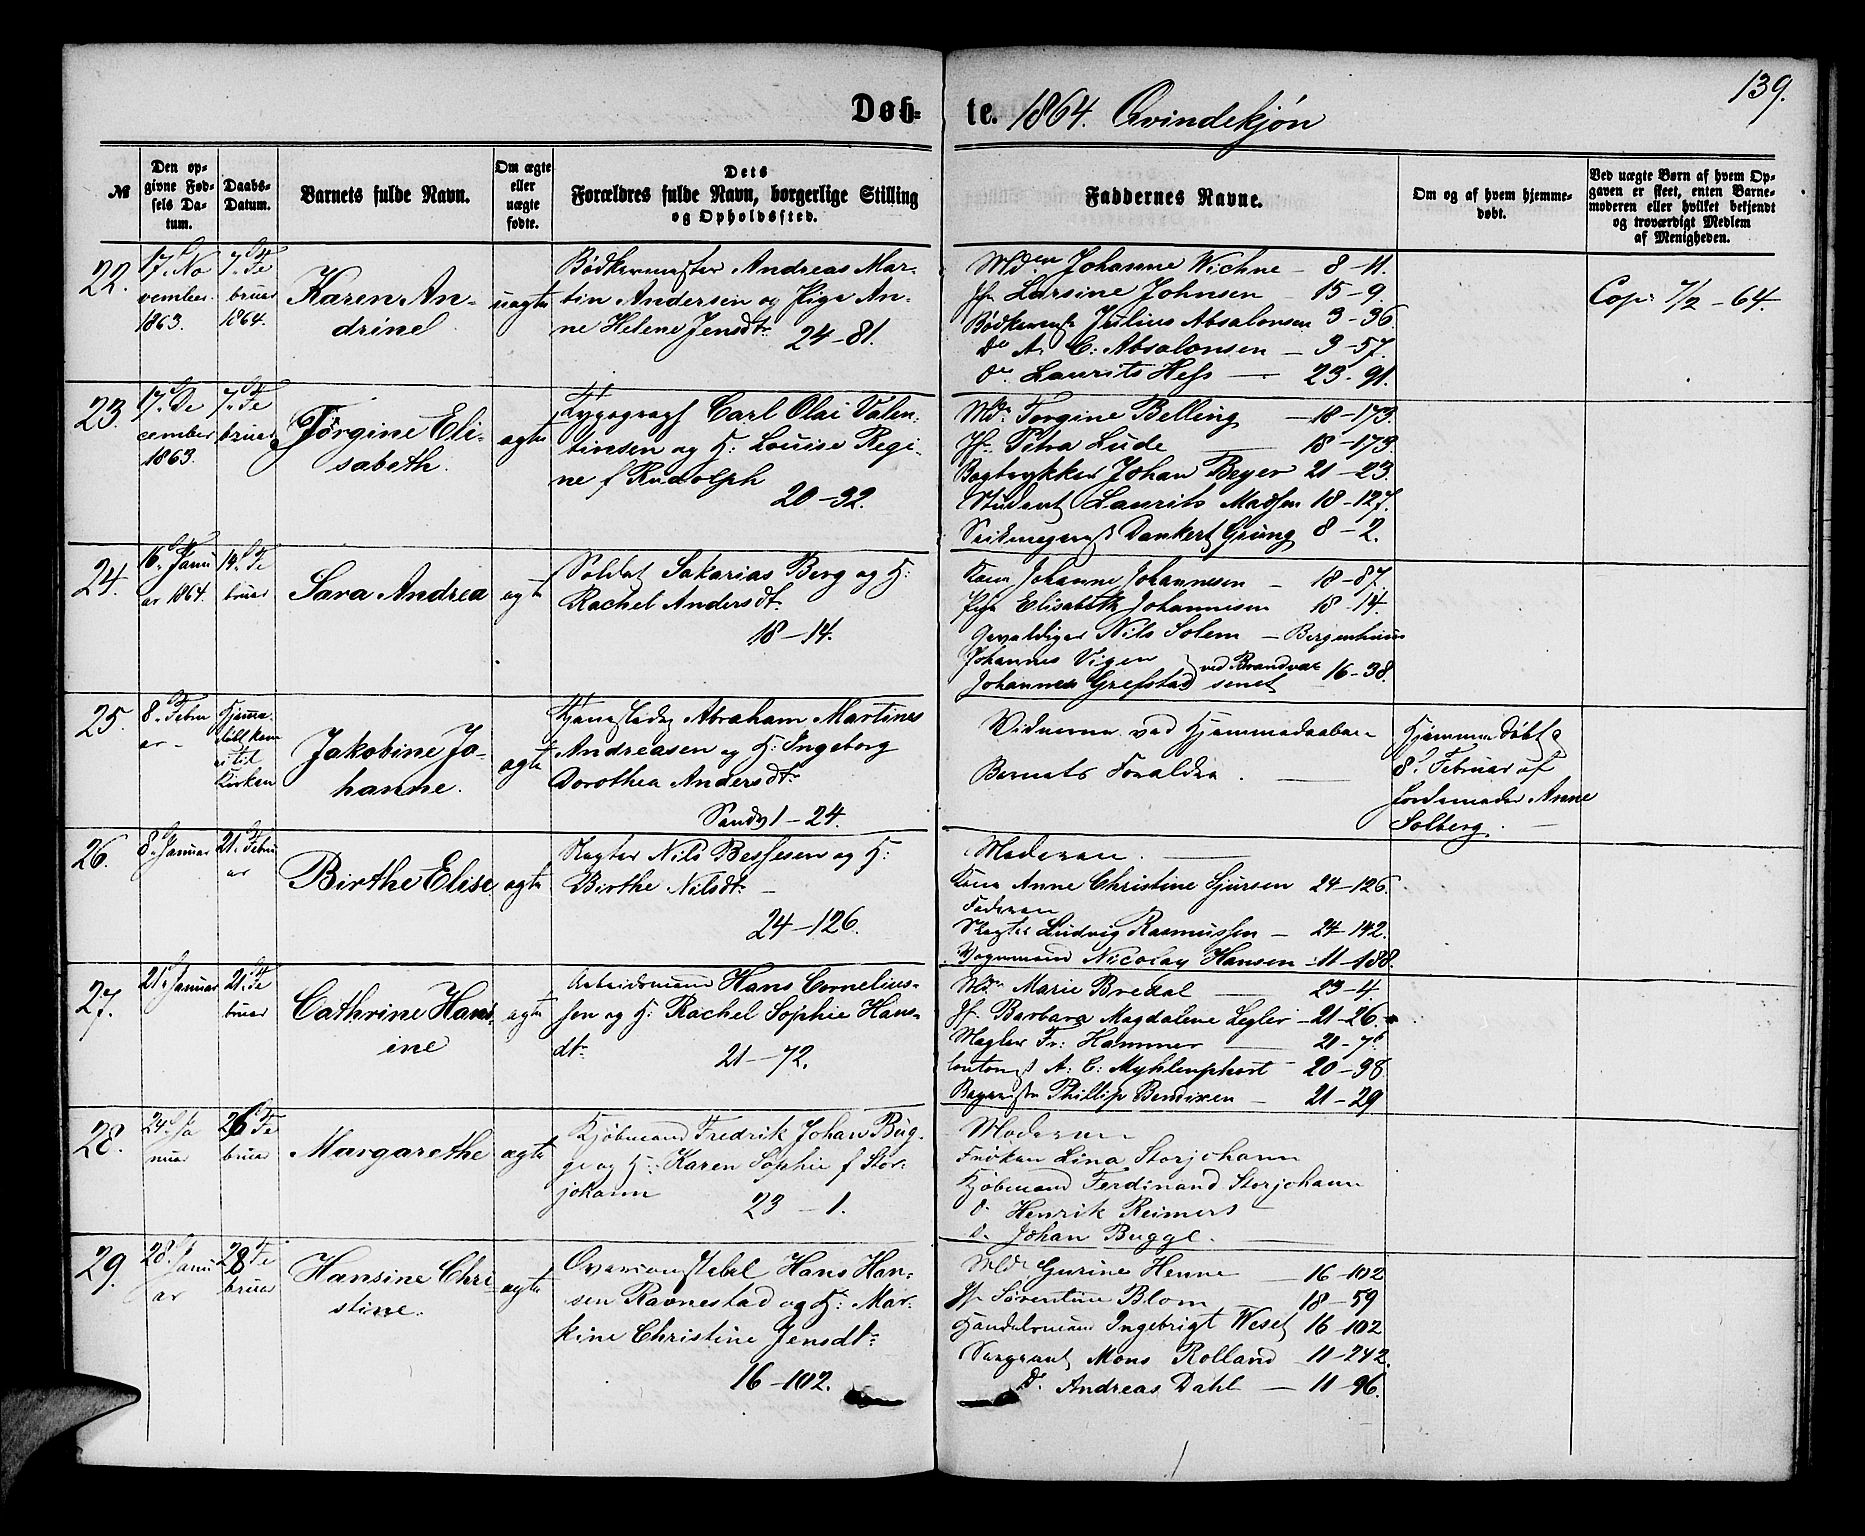 139.
Døb-te. 1864. Qvindekjøn
№
Den op-
givne Fød-
sels Da-
tum.
Daabs-
Datum.
Barnets fulde Navn.
Om ægte
eller
uægte
fødte.
Dets
Forældres fulde Navn, borgerlige Stilling
og Opholdssted.
Faddernes Navne.
Om og af hvem hjemme-
døbt.
Ved uægte Børn af hvem Op-
gaven er skeet, enten Barne-
moderen eller hvilket bekjendt
og troværdigt Medlem
af Menigheden.
22.
17. No
vember
1863.
7. Fe
bruar
1864.
Karen An-
drine
uægte
Bødkermester Andreas Mar-
tin Andersen og Pige An-
ne Helene Jensdtr.
24-81.
Mdm Johanne Wichne - 8-11.
Jfr Larsine Johnsen - 15-9.
Bødkersv. Julius Absalonsen 3-36
Do A. C. Absalonsen - 3-57.
Do. Laurits Hess - 23-91.
Cop. 7/2-64.
23.
17. De
cember
1863.
7. Fe
bruar
Jørgine Eli-
sabeth.
ægte
Typograph Carl Olai Valen-
tinsen og H: Louise Regi-
ne f Rudolph
20-32.
Md. Jørgine Belling - 18-173.
Jfr Petra Lude 18-173.
Bogtrykker Johan Beyer 21-23.
Student Laurits Madsen 18-127.
Dankert Grung 8-2.
24.
16. Janu
ar 1864.
14. Fe
bruar
Sara Andrea
ægte
Soldat Sakarias Berg og H:
Rachel Andersdtr.
18-14.
Kone Johanne Johannesen - 18-87.
Pige Elisabeth Johannesen 18-14.
Gevaldiger Nils Solem - Bergenhuus
Johannes Vigen
Johannes Grefstad ved Brandvæ-
senet 16-38.
25.
8. Febru
ar -
Hjemme.
til
Kirken
Jakobine Jo-
hanne.
ægte
Abraham Martines
Andreasen og H: Ingeborg
Dorothea Andersdtr.
Sandv 1-24.
Vidnerne ved Hjemmedaaben
Barnets Forældre.
Hjemmedøbt
8. Februar af
Jordemoder Anne
Solberg.
26.
8. Januar
21. Febru
ar
Birthe Elise
ægte
Slagter Nils Bessesen og H:
Birthe Nilsdtr. -
24-126.
Moderen.
Kone Anne Christine Sjursen 24-126.
Faderen
Slagter Ludvig Rasmussen - 24-142.
Vognmand Nicolay Hansen - 11-188.
27.
21. Januar
21. Fe
bruar
Cathrine Hans
ine
ægte
Arbeidsmand Hans Cornelius-
sen og H: Rachel Sophie Hans-
dtr.
21-72.
Md. Marie Bredal 23-4.
Jfr. Barbara Magdalene Legler - 21-26.
Mægler Fr: Hammer 21-76
A: C: Myhlenphort - 20-98
Phillip Bendixen - 21-29
28.
24. Ja
nuar
26 Fe
bruar
Margarethe
ægte
Kjøbmand Fredrik Johan Bug-
ge og H: Karen Sophie f Stor-
johann
23-1.
Moderen
Frøken Lina Storjohann
Kjøbmand Ferdinand Storjohann
Do Henrik Reimers
Do. Johan Bugge.
29.
28. Janu
ar
28 Fe
bruar
Hansine Chri-
stine.
ægte
Overconstabel Hans Han-
sen Ravnestad og H: Mar-
kine Christine Jensdtr.
16-102.
Md. Gurine Henne - 16-102
Jfr Sørentine Blom - 18-59
Handelsmand Ingebrigt Weset 16-102
Sergeant Mons Rolland - 11-242.
Do. Andreas Dahl - 11-96.